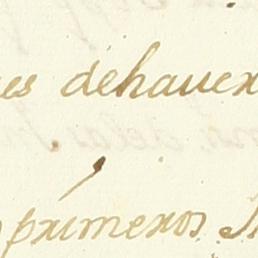 es dehaver
primeros